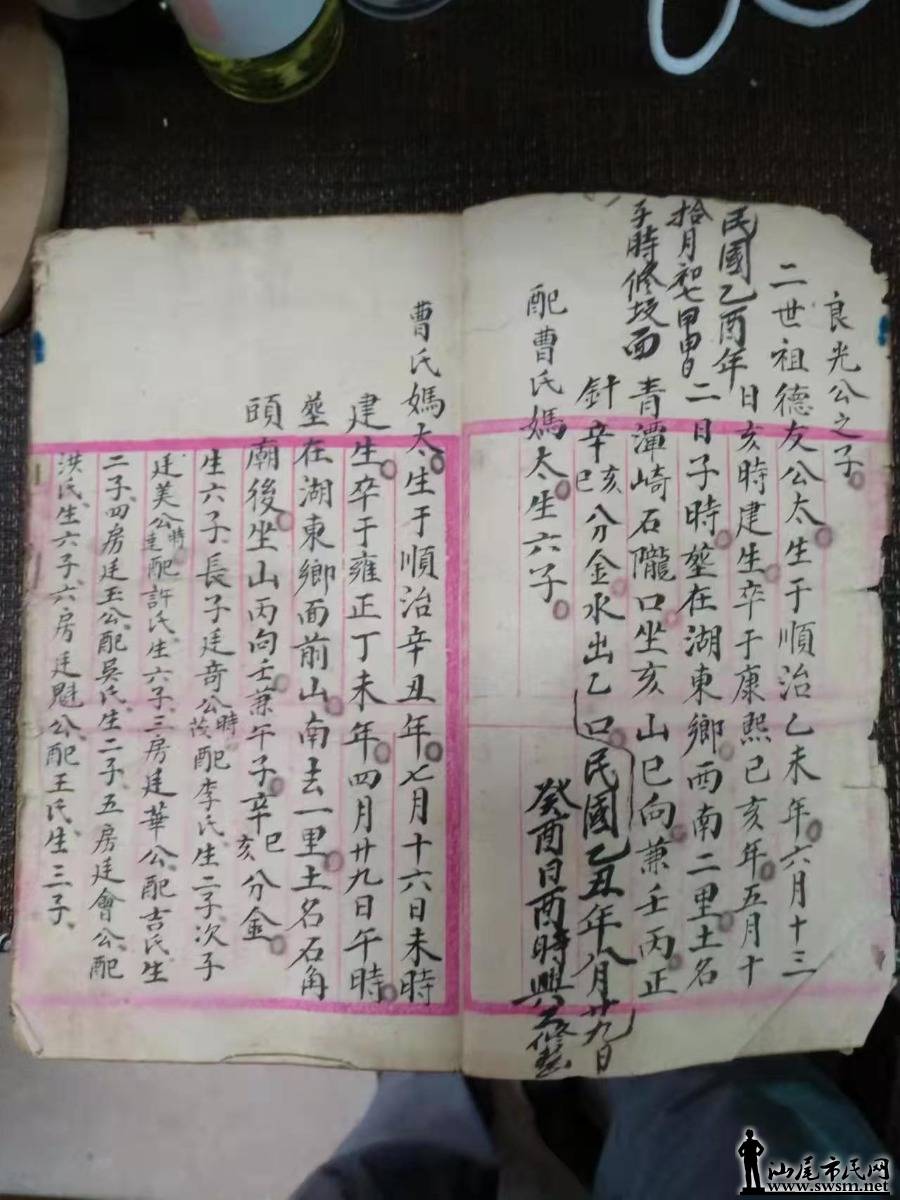 良光公之子
二世祖德友公太生于順治乙未年六月十三
日亥時建生卒于康熙己亥年五月十
二日子時塟在湖東鄉西南二里土名
青潭崎石隴口坐亥山巳向兼壬丙正
針辛亥辛巳分金水出乙口
民國乙酉年
拾月初七甲申日
時修坟面
民國乙丑年八月廿九日
癸酉日酉時興工修塟
配曹氏媽太生六子
曹氏媽太生于順治辛丑年七月十六日未時
建生卒于雍正丁未年四月廿九日午時
塟在湖東鄉面前山南去一里土名石角
頭廟後坐山丙向壬兼午子辛巳亥分金
生六子長子廷奇公時茂配李氏生二子次子
廷美公時達配許氏生六子三房廷華公配吉氏生
二子四房廷玉公配吳氏生二子五房廷會公配
洪氏生六子六房廷魁公配王氏生三子
汕尾市民网
www.swsm.net